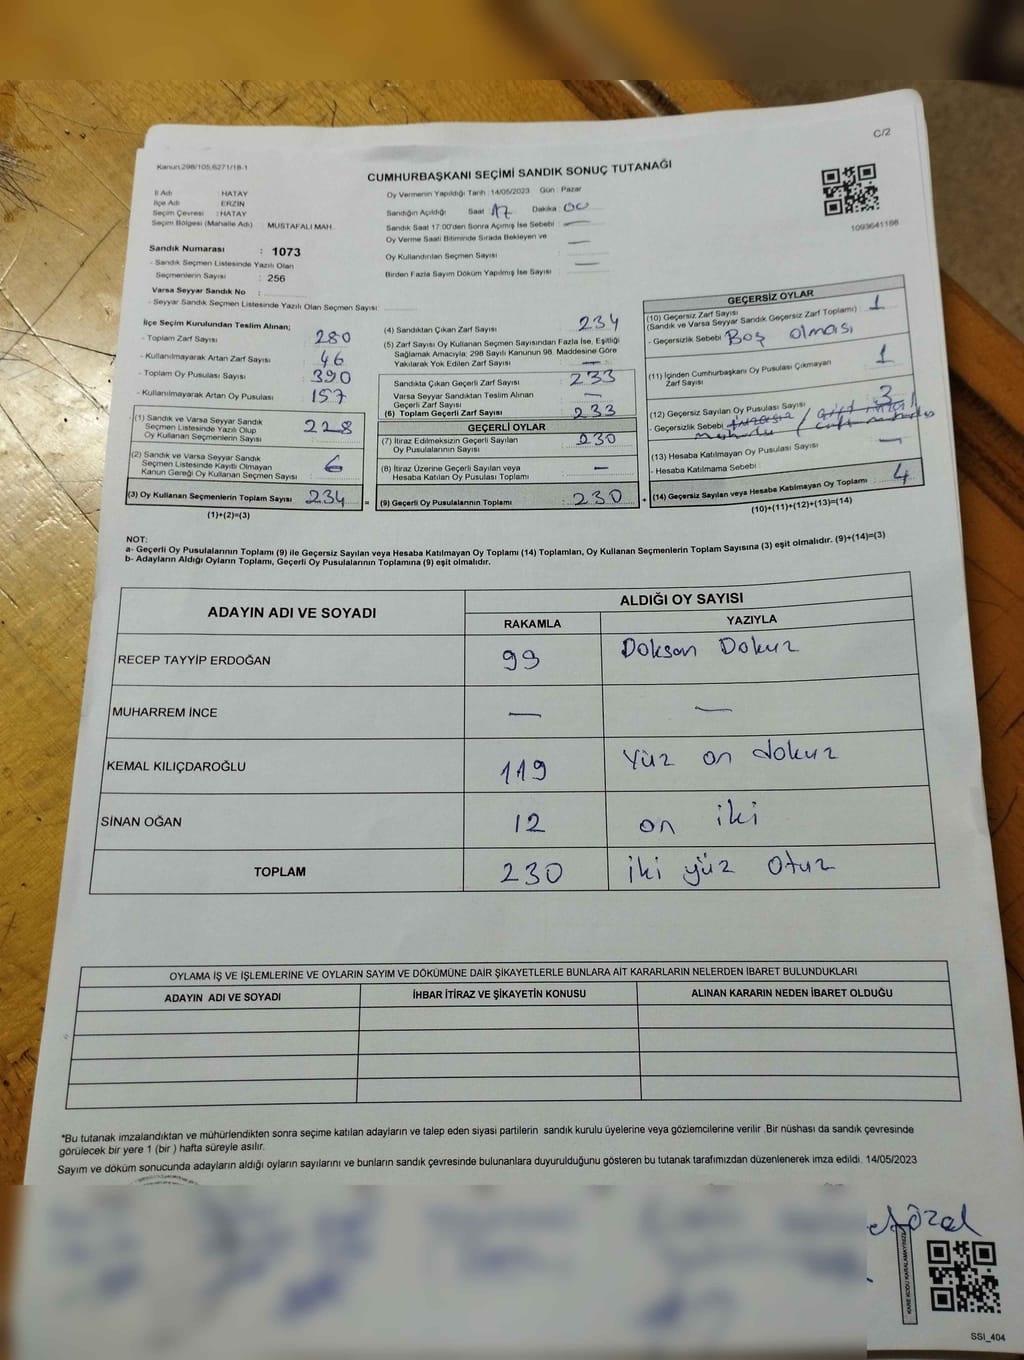 C/2
Kanun:298/105,6271/18-1
CUMHURBAŞKANI SEÇİMİ SANDIK SONUÇ TUTANAĞI
İl Adı : HATAY
İlçe Adı : ERZİN
Seçim Çevresi : HATAY
Seçim Bölgesi (Mahalle Adı) MUSTAFALI MAH.
Sandık Numarası : 1073
- Sandık Seçmen Listesinde Yazılı Olan
Seçmenlerin Sayısı : 256
Varsa Seyyar Sandık No :
- Seyyar Sandık Seçmen Listesinde Yazılı Olan Seçmen Sayısı:
Oy Vermenin Yapıldığı Tarih : 14/05/2023 Gün : Pazar
Sandığın Açıldığı Saat 17 Dakika : 00
Sandık Saat 17:00'den Sonra Açılmış İse Sebebi : —
Oy Verme Saati Bitiminde Sırada Bekleyen ve
Oy Kullandırılan Seçmen Sayısı : —
Birden Fazla Sayım Döküm Yapılmış İse Sayısı : —
1093641166
İlçe Seçim Kurulundan Teslim Alınan;
- Toplam Zarf Sayısı : 280
- Kullanılmayarak Artan Zarf Sayısı : 46
- Toplam Oy Pusulası Sayısı : 390
- Kullanılmayarak Artan Oy Pusulası : 157
(1) Sandık ve Varsa Seyyar Sandık
Seçmen Listesinde Yazılı Olup
Oy Kullanan Seçmenlerin Sayısı : 228
(2) Sandık ve Varsa Seyyar Sandık
Seçmen Listesinde Kayıtlı Olmayan
Kanun Gereği Oy Kullanan Seçmen Sayısı : 6
(3) Oy Kullanan Seçmenlerin Toplam Sayısı : 234 =
(1)+(2)=(3)
(4) Sandıktan Çıkan Zarf Sayısı : 234
(5) Zarf Sayısı Oy Kullanan Seçmen Sayısından Fazla İse, Eşitliği
Sağlamak Amacıyla; 298 Sayılı Kanunun 98. Maddesine Göre
Yakılarak Yok Edilen Zarf Sayısı : —
Sandıkta Çıkan Geçerli Zarf Sayısı : 233
Varsa Seyyar Sandıktan Teslim Alınan
Geçerli Zarf Sayısı : —
(6) Toplam Geçerli Zarf Sayısı : 233
GEÇERLİ OYLAR
(7) İtiraz Edilmeksizin Geçerli Sayılan
Oy Pusulalarının Sayısı : 230
(8) İtiraz Üzerine Geçerli Sayılan veya
Hesaba Katılan Oy Pusulası Toplamı : —
(9) Geçerli Oy Pusulalarının Toplamı : 230 +
GEÇERSİZ OYLAR
(10) Geçersiz Zarf Sayısı
(Sandık ve Varsa Seyyar Sandık Geçersiz Zarf Toplamı) : 1
- Geçersizlik Sebebi : Boş olması
(11) İçinden Cumhurbaşkanı Oy Pusulası Çıkmayan
Zarf Sayısı : 1
(12) Geçersiz Sayılan Oy Pusulası Sayısı : 3
- Geçersizlik Sebebi :
(13) Hesaba Katılmayan Oy Pusulası Sayısı : —
- Hesaba Katılmama Sebebi :
(14) Geçersiz Sayılan veya Hesaba Katılmayan Oy Toplamı : 4
(10)+(11)+(12)+(13)=(14)
NOT:
a- Geçerli Oy Pusulalarının Toplamı (9) ile Geçersiz Sayılan veya Hesaba Katılmayan Oy Toplamı (14) Toplamları, Oy Kullanan Seçmenlerin Toplam Sayısına (3) eşit olmalıdır. (9)+(14)=(3)
b- Adayların Aldığı Oyların Toplamı, Geçerli Oy Pusulalarının Toplamına (9) eşit olmalıdır.
ADAYIN ADI VE SOYADI
ALDIĞI OY SAYISI
RAKAMLA YAZIYLA
RECEP TAYYİP ERDOĞAN 99 Doksan Dokuz
MUHARREM İNCE — —
KEMAL KILIÇDAROĞLU 119 Yüz on dokuz
SİNAN OĞAN 12 on iki
TOPLAM 230 iki yüz otuz
OYLAMA İŞ VE İŞLEMLERİNE VE OYLARIN SAYIM VE DÖKÜMÜNE DAİR ŞİKAYETLERLE BUNLARA AİT KARARLARIN NELERDEN İBARET BULUNDUKLARI
ADAYIN ADI VE SOYADI İHBAR İTİRAZ VE ŞİKAYETİN KONUSU ALINAN KARARIN NEDEN İBARET OLDUĞU
*Bu tutanak imzalandıktan ve mühürlendikten sonra seçime katılan adayların ve talep eden siyasi partilerin sandık kurulu üyelerine veya gözlemcilerine verilir .Bir nüshası da sandık çevresinde
görülecek bir yere 1 (bir ) hafta süreyle asılır.
Sayım ve döküm sonucunda adayların aldığı oyların sayılarını ve bunların sandık çevresinde bulunanlara duyurulduğunu gösteren bu tutanak tarafımızdan düzenlenerek imza edildi. 14/05/2023
KARE KODU KARALAMAYINIZ
SSI_404